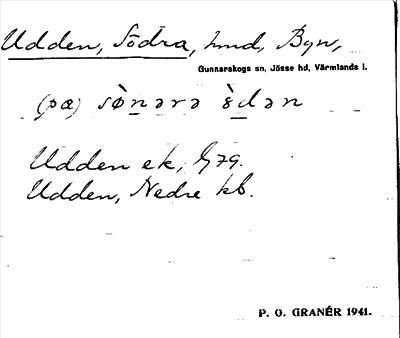 Udden, Södra, hmd, Byn,
Gunnarskogs sn, Jösse hd, Värmlands l.
(pæ) sø̀nərə ùdən
Udden ek, G79.
Udden, Nedre kb.
P. O. GRANÉR 1941.